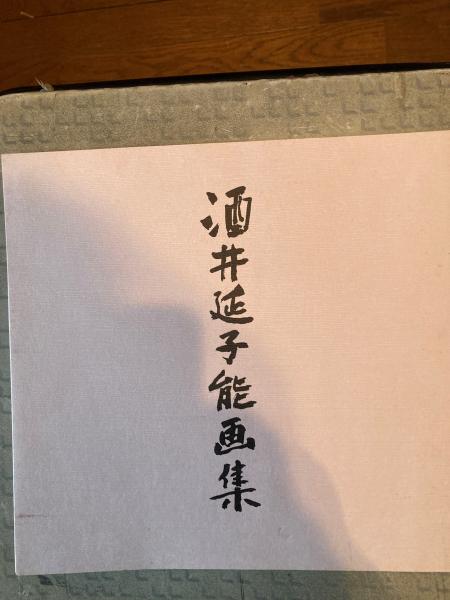 酒井延子能画集